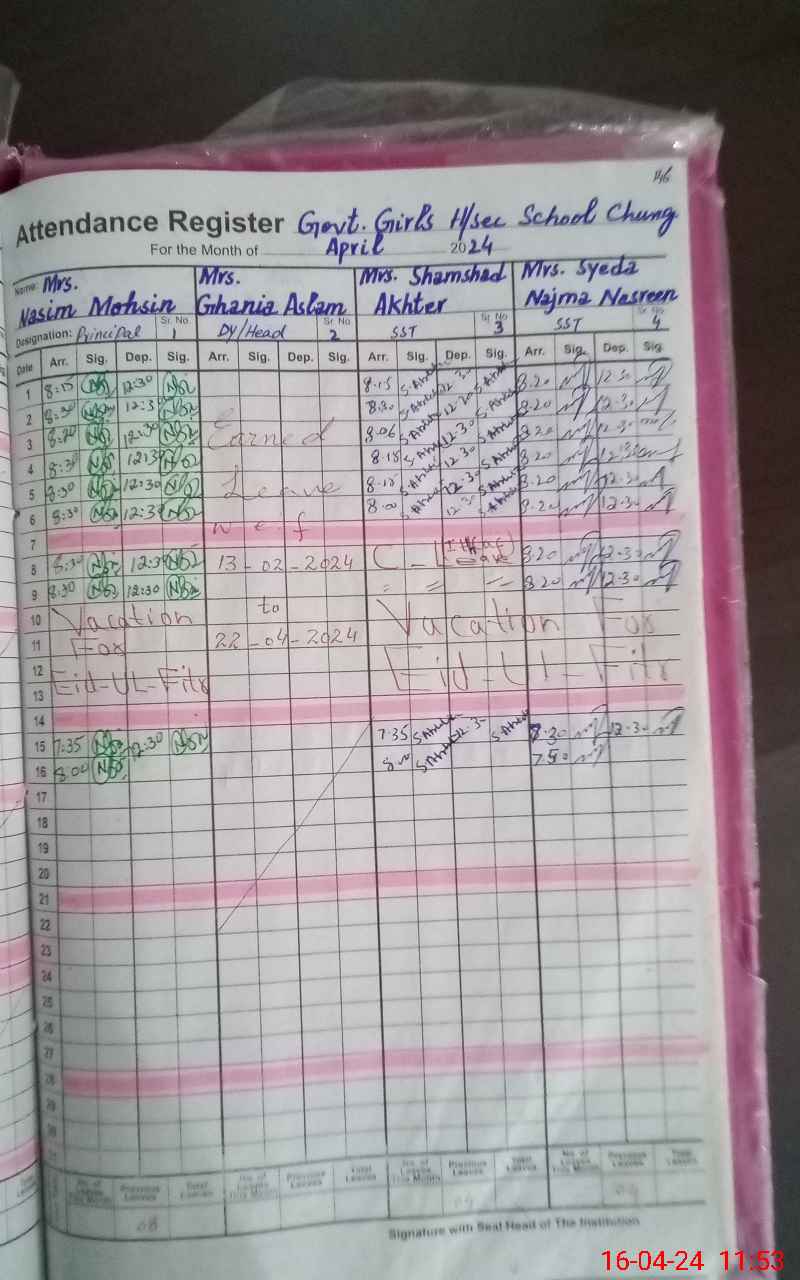 146
Attendance Register Govt. Girls H/sec School Chung
For the Month of April 2024
Name: Mrs. Nasim Mohsin Mrs. Ghania Aslam Mrs. Shamshad Akhter Mrs. Syeda Najma Nasreen
Designation: Principal Sr. No. 1 Dy/Head Sr. No 2 SST Sr. No 3 SST Sr. No 4
Date Arr. Sig. Dep. Sig. Arr. Sig. Dep. Sig. Arr. Sig. Dep. Sig. Arr. Sig. Dep. Sig.
1 8:15 12:30 8.15 S.Akhter 12.30 S.Akhter 8.20 12.30
2 8:30 12:30 8.20 12.30
3 8:20 12:30 Earned 8.06 12.30 8.20 12.30
4 8:30 12:30 8.15 12.30 8.20 12.30
5 8:30 12:30 Leave 8.10 12.30 8.20 12.30
6 8:30 12:30 8.00 12.30 8.20 12.30
7 w.e.f
8 8:30 12:30 13-02-2024 C-L 8.20 12.30
9 8:30 12:30 " " 8.20 12.30
10 Vacation to Vacation For
11 For 22-04-2024
12 Eid-Ul-Fitr
13 Eid-UL-Fitr
14
15 7:35 12:30 7.35 12.30 7.30 12.30
16 8:00 8.00 7.50
17
18
19
20
21
22
23
24
25
26
27
28
29
30
No. of Leaves This Month Previous Leaves Total Leaves No. of Leaves This Month Previous Leaves Total Leaves No. of Leaves This Month Previous Leaves Total Leaves No. of Leaves This Month Previous Leaves Total Leaves
08
Signature with Seal Head of The Institution
16-04-24 11:53